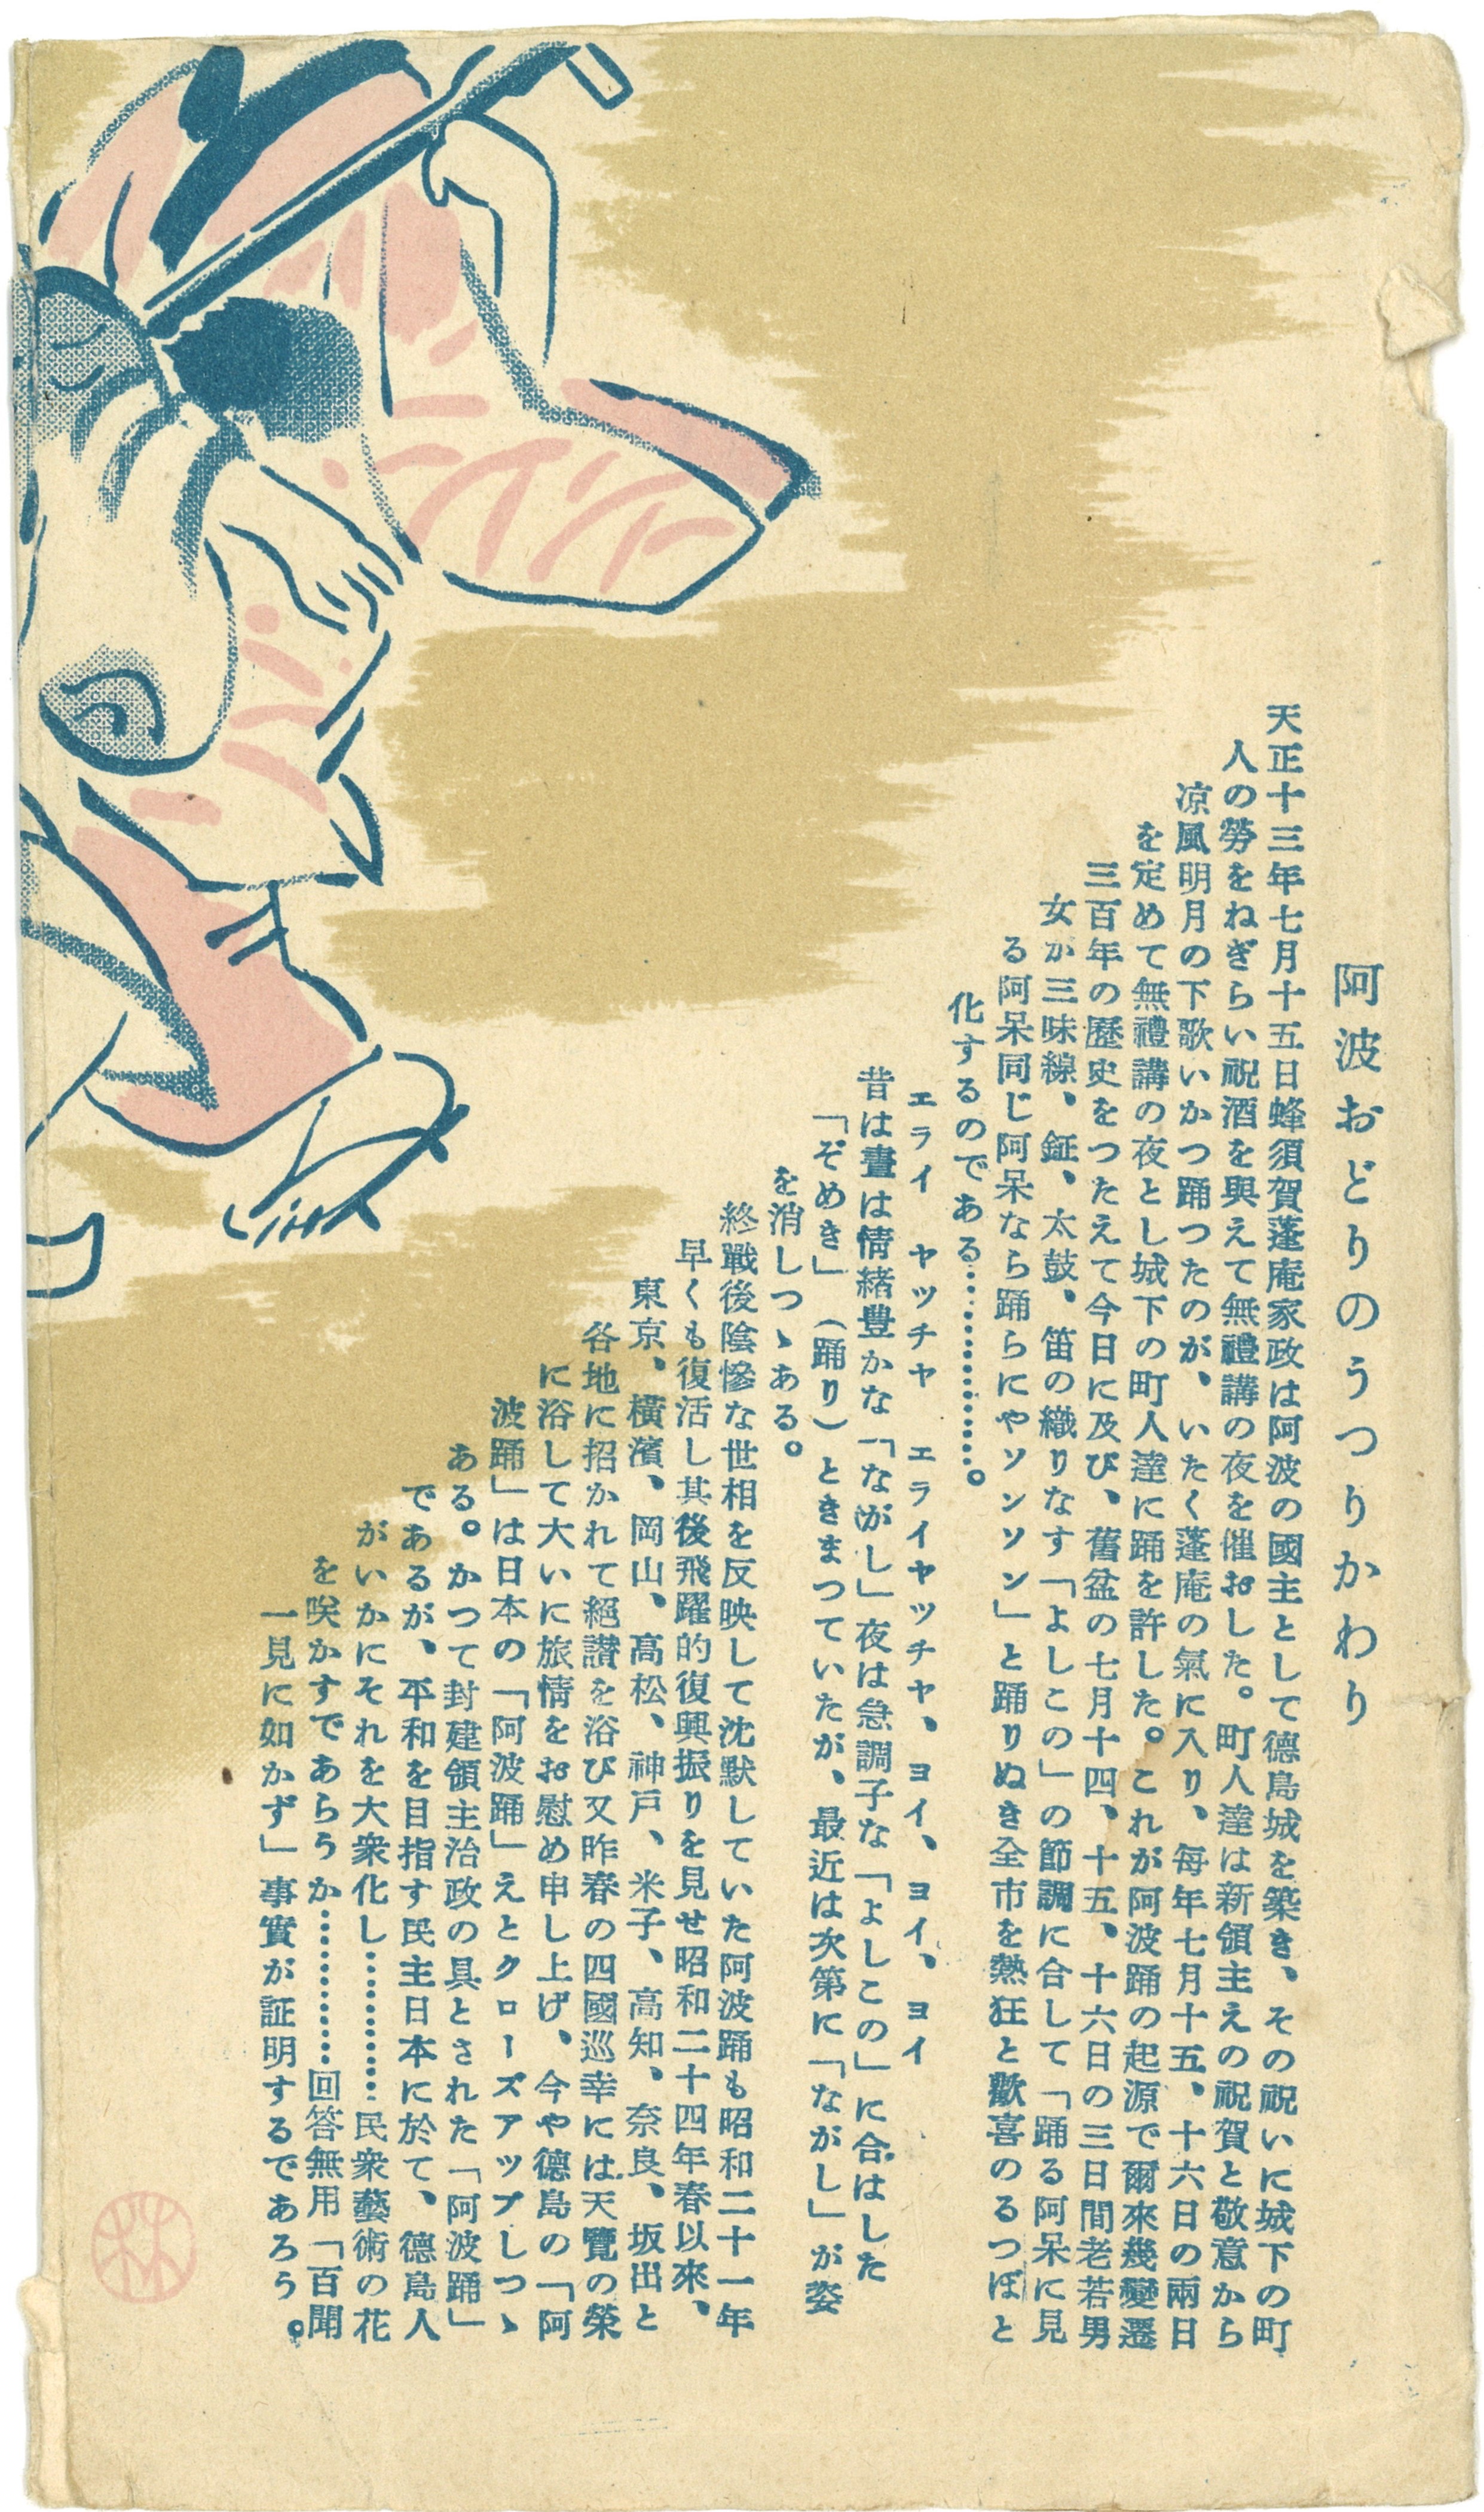 阿波おどりのうつりかわり
天正十三年七月十五日蜂須賀蓬庵家政は阿波の國主として德島城を築き、その祝いに城下の町
人の勞をねぎらい祝酒を與えて無禮講の夜を催おした。町人達は新領主えの祝賀と敬意から
凉風明月の下歌いかつ踊つたのが、いたく蓬庵の氣に入り、毎年七月十五、十六日の兩日
を定めて無禮講の夜とし城下の町人達に踊を許した。これが阿波踊の起源で爾來幾變遷
三百年の歷史をつたえて今日に及び、舊盆の七月十四、十五、十六日の三日間老若男
女が三味線、鉦、太鼓、笛の織りなす「よしこの」の節調に合して「踊る阿呆に見
る阿呆同じ阿呆なら踊らにやソンソン」と踊りぬき全市を熱狂と歡喜のるつぼと
化するのである…………。
エライ ヤツチヤ エライヤツチヤ、ヨイ、ヨイ、ヨイ
昔は晝は情緖豊かな「ながし」夜は急調子な「よしこの」に合はした
「ぞめき」(踊り)ときまつていたが、最近は次第に「ながし」が姿
を消しつゝある。
終戰後陰慘な世相を反映して沈默していた阿波踊も昭和二十一年
早くも復活し其後飛躍的復興振りを見せ昭和二十四年春以來、
東京、橫濱、岡山、高松、神戸、米子、高知、奈良、坂出と
各地に招かれて絕讃を浴び又昨春の四國巡幸には天覽の榮
に浴して大いに旅情をお慰め申し上げ、今や德島の「阿
波踊」は日本の「阿波踊」えとクローズアツプしつゝ
ある。かつて封建領主治政の具とされた「阿波踊」
であるが、平和を目指す民主日本に於て、德島人
がいかにそれを大衆化し…………民衆藝術の花
を咲かすであらうか…………回答無用「百聞
一見に如かず」事實が証明するであろう。
林